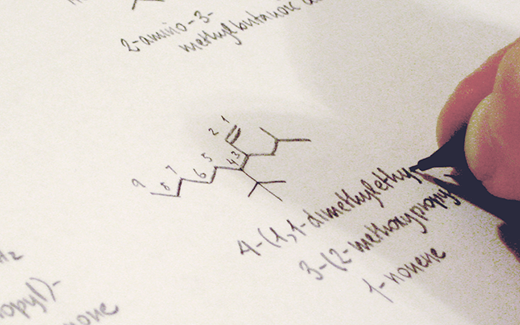 2-amino-3-
methylbutanoic
1
2
3
4
5
6
7
8
9
4-(1,1-dimethylethy
3-(2-methoxypropy
1-nonene
opyl)-
none